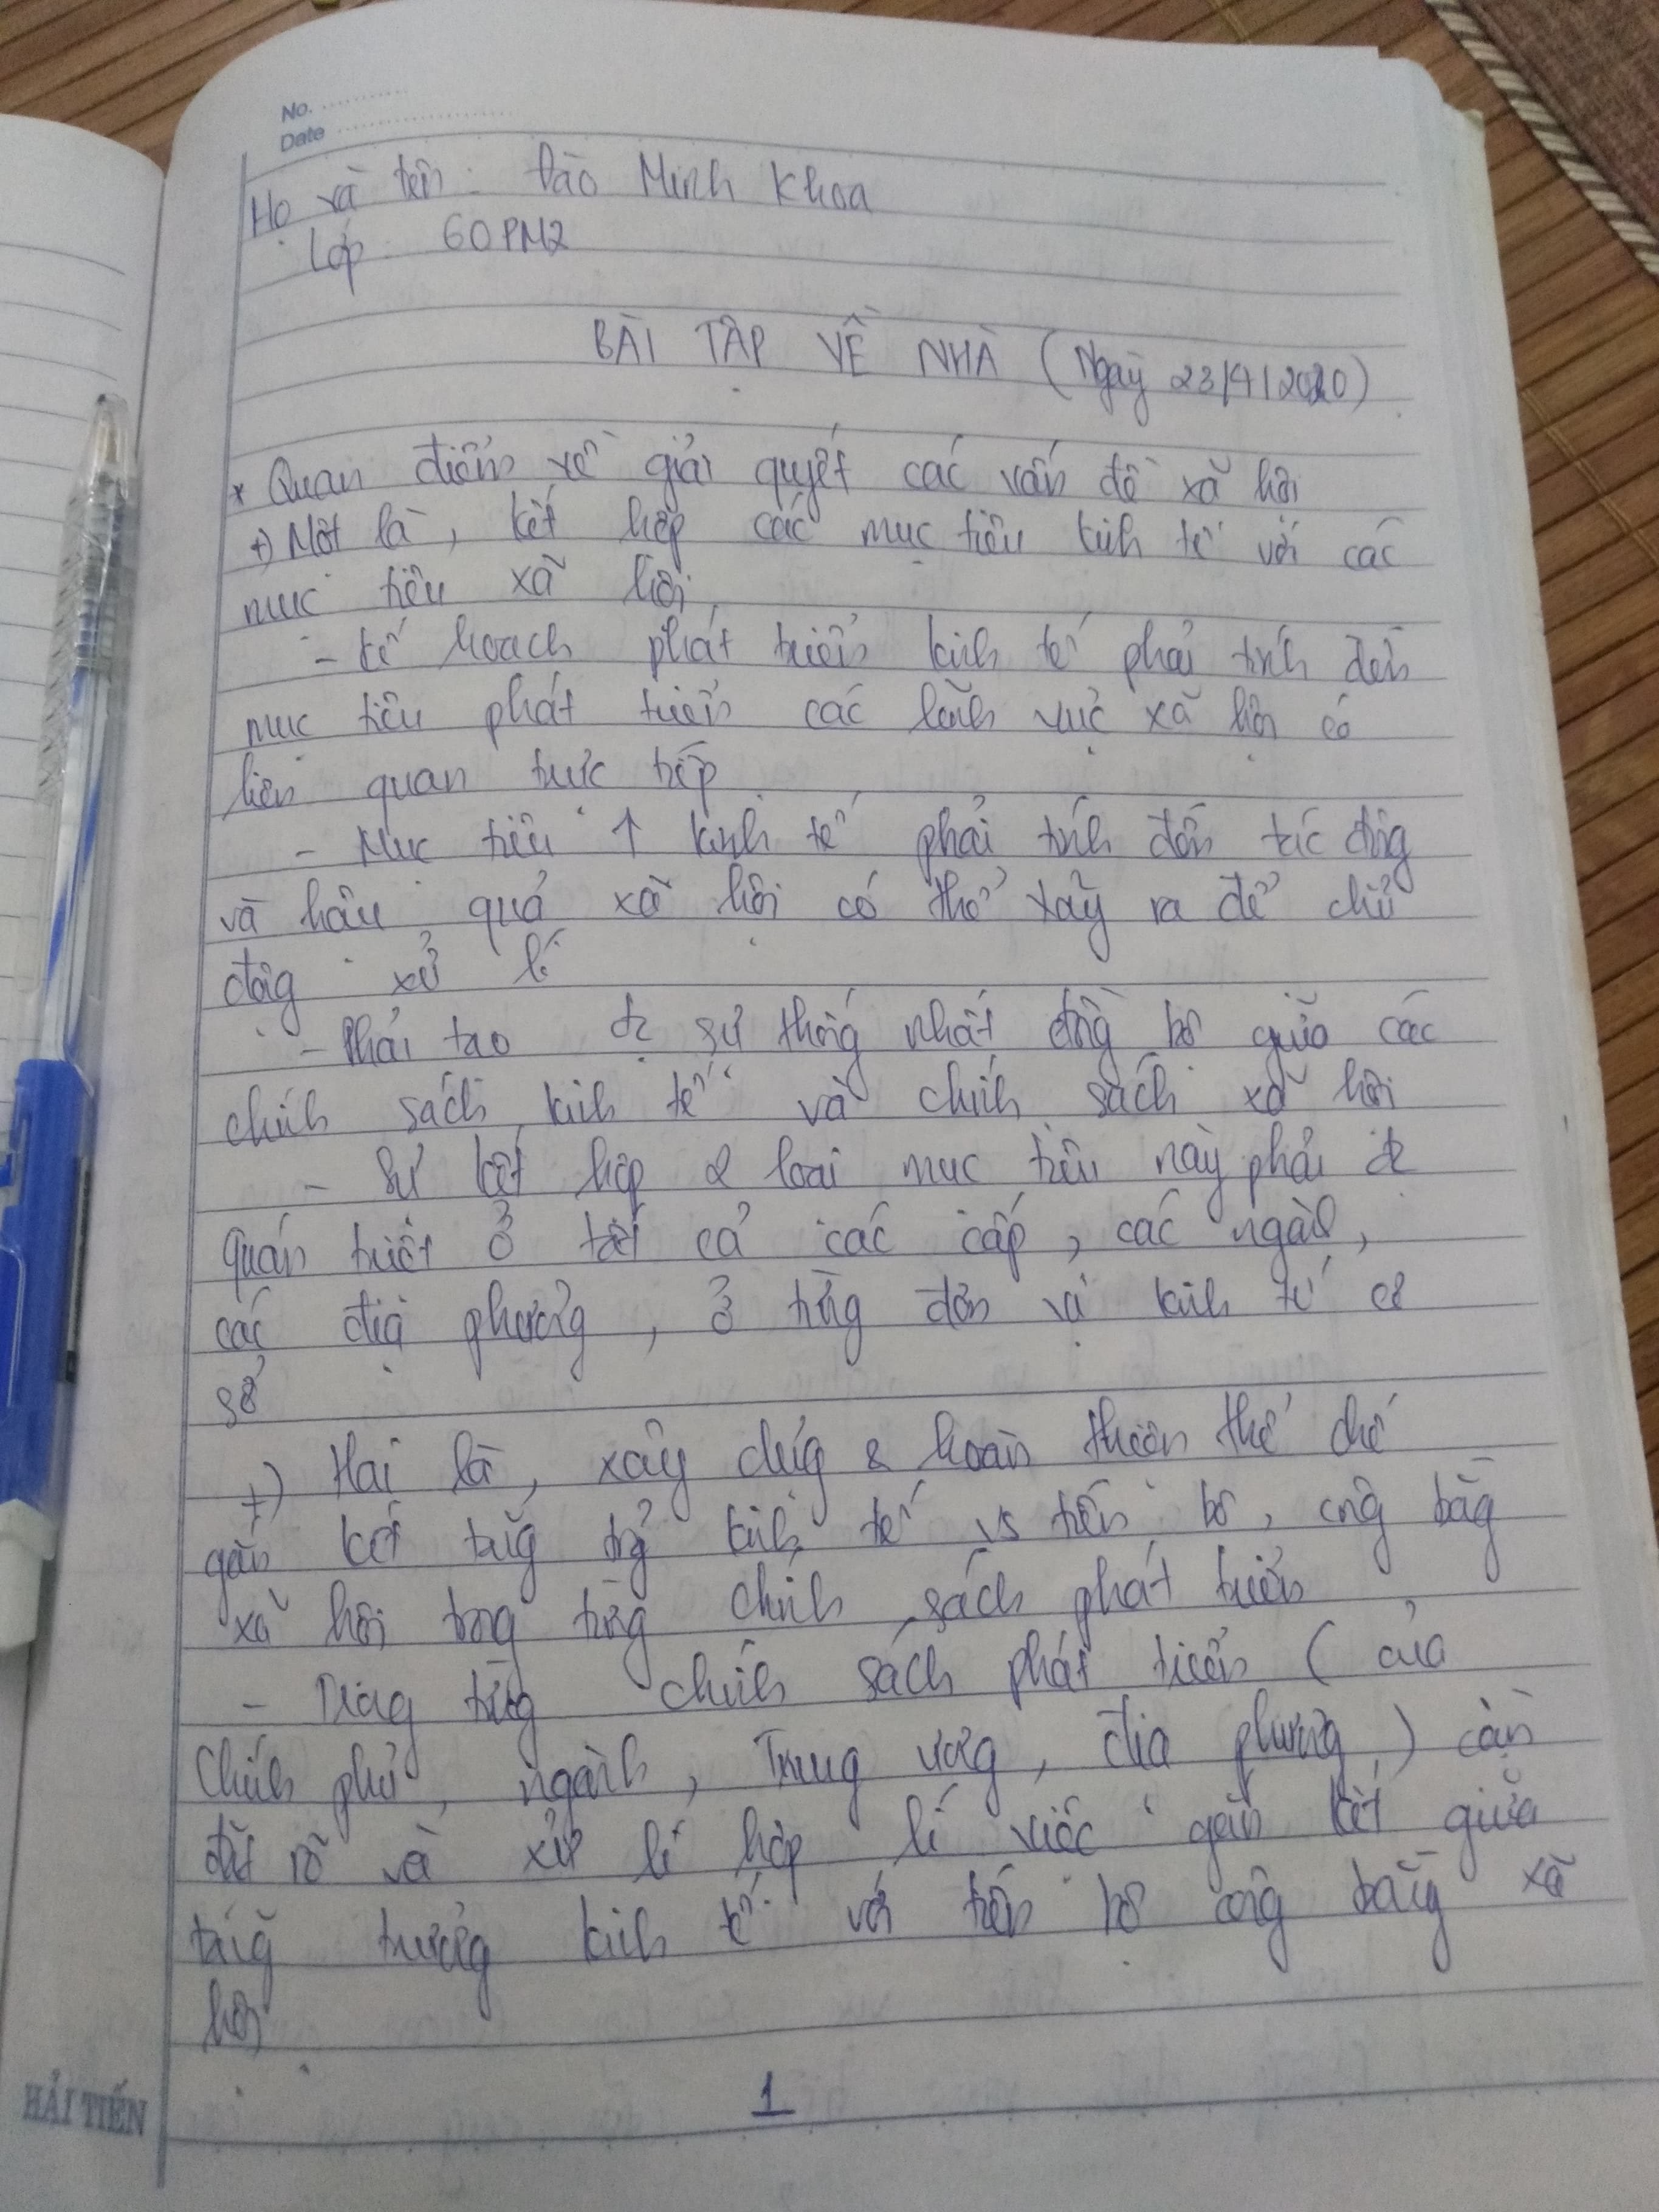 No.
Date
Họ và tên: Đào Minh Khoa
Lớp: 60PM2
BÀI TẬP VỀ NHÀ (Ngày 23/4/2020)
* Quan điểm về giải quyết các vấn đề xã hội
+) Một là, kết hợp các mục tiêu kinh tế với các
mục tiêu xã hội
- Kế hoạch phát triển kinh tế phải tính đến
mục tiêu phát triển các lĩnh vực xã hội có
liên quan trực tiếp
- Mục tiêu ↑ kinh tế phải tính đến tác động
và hậu quả xã hội có thể xảy ra để chủ
động xử lí
- Phải tạo đc sự thống nhất đồng bộ giữa các
chính sách kinh tế và chính sách xã hội
- Sự kết hợp 2 loại mục tiêu này phải đc
quán triệt ở tất cả các cấp, các ngành,
các địa phương, ở từng đơn vị kinh tế cơ
sở
+) Hai là, xây dựng & hoàn thiện thể chế
gắn kết tăng trg kinh tế vs tiến bộ, công bằng
xã hội trong từng chính sách phát triển
- Trong từng chính sách phát triển (của
Chính phủ, ngành, Trung ương, địa phương) cần
đặt rõ và xử lí hợp lí việc gắn kết giữa
tăng trưởng kinh tế với tiến bộ công bằng xã
hội
1
HẢI TIẾN